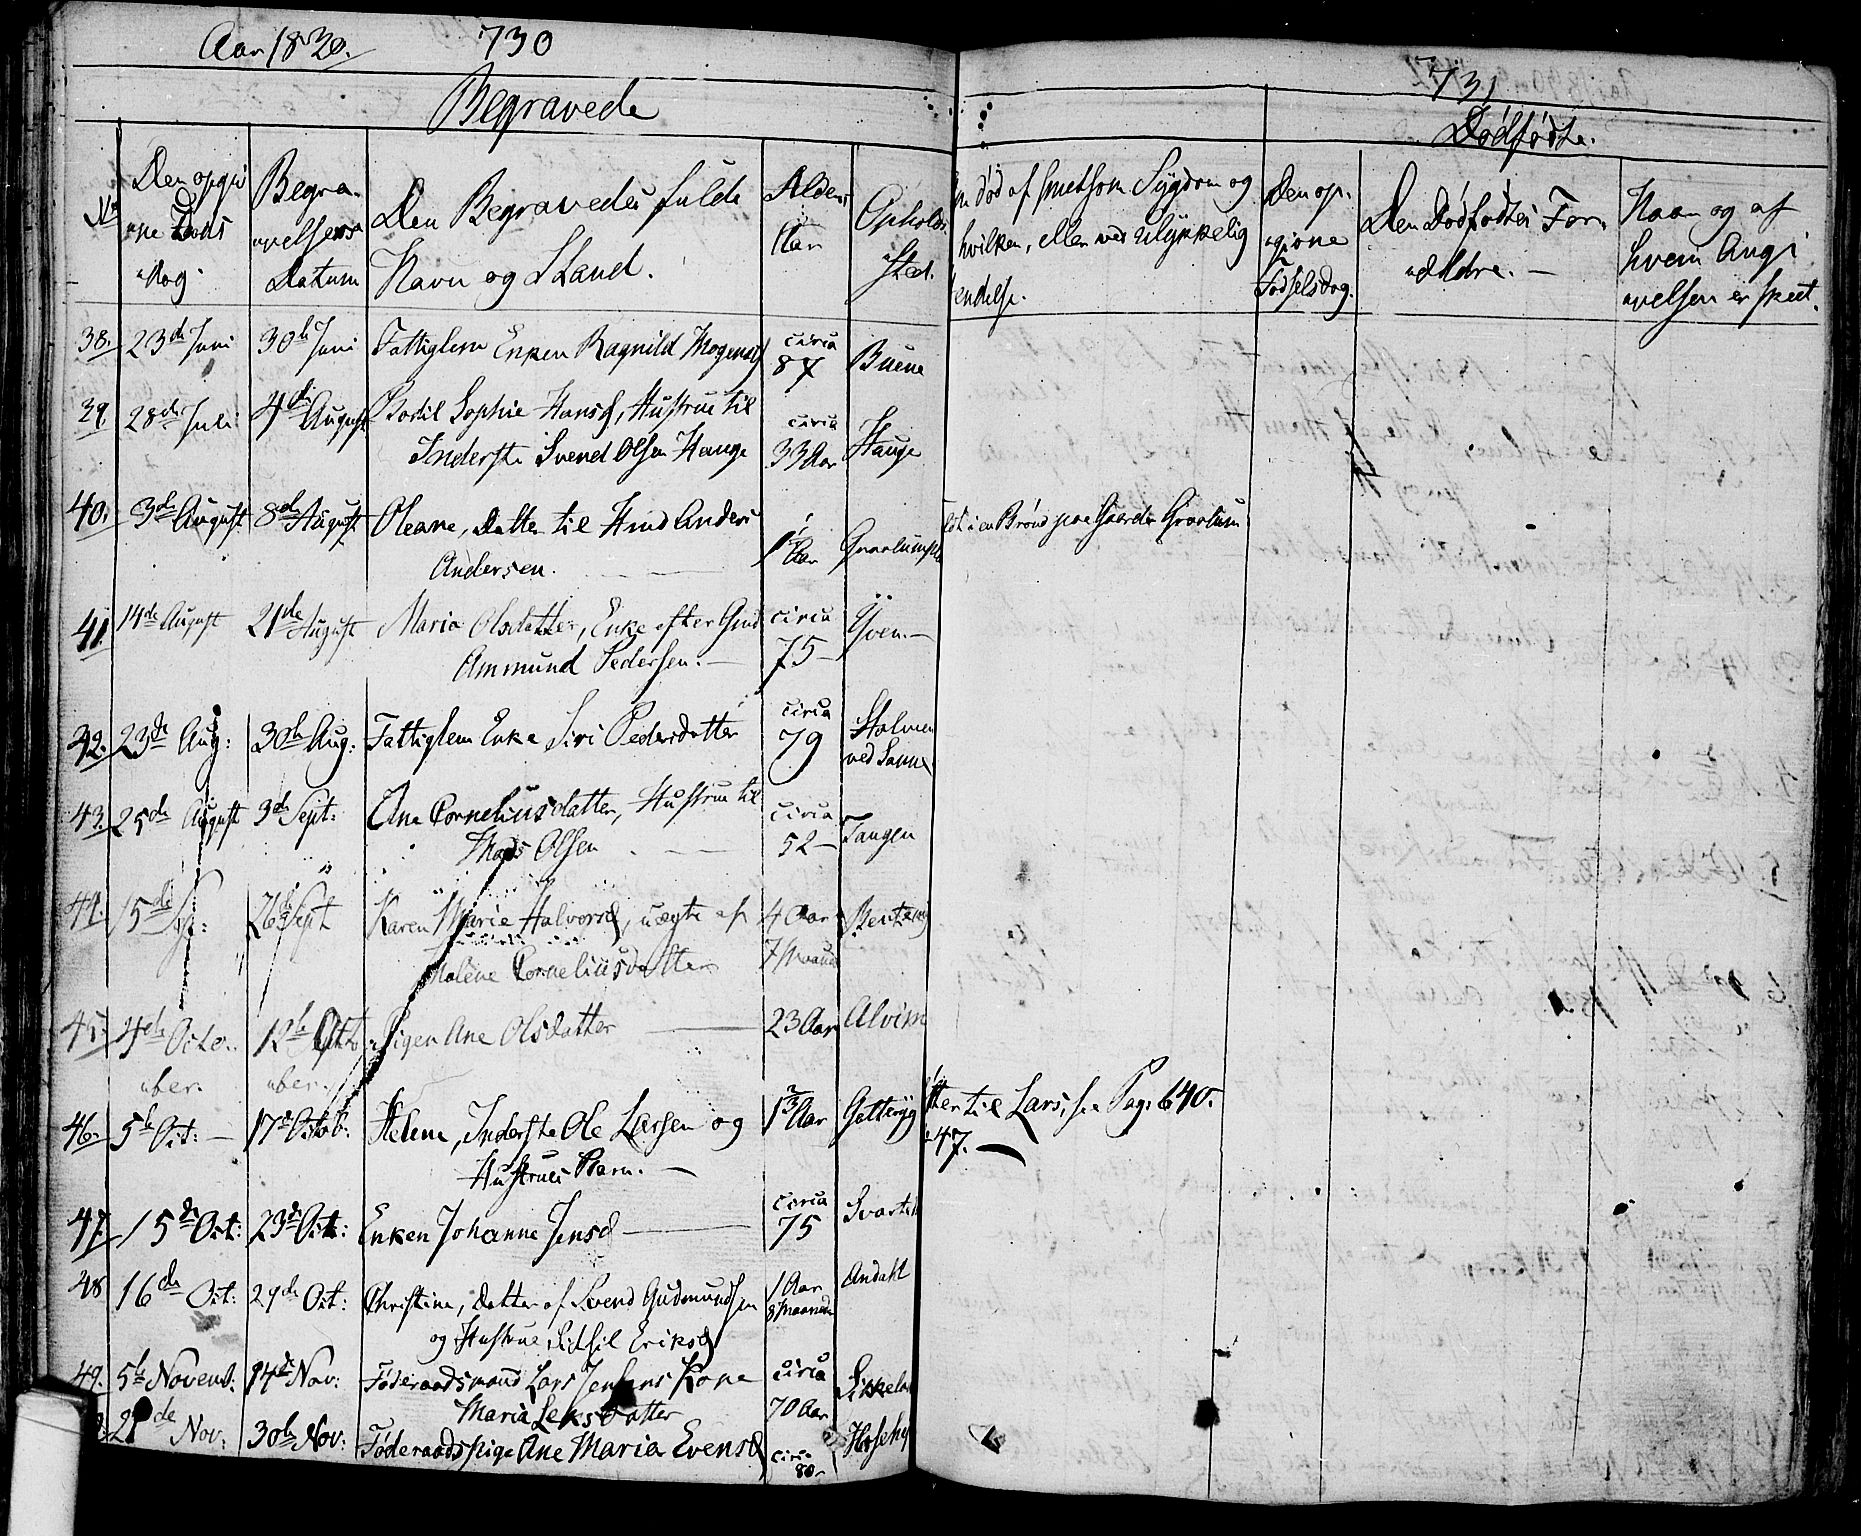 Aar 1830.
730
Begravede
No
Den opgivne Døds Dag
Begravelsens Datum
Den Begravedes fulde Navn og Stand.
Alder Aar
Opholds Sted.
38. 23de Juni 30te Juni Fattiglem Enken Ragnild Mogensd circa 87 Buene
39. 28de Juli 4de August Bodil Sophie Hansd, Hustrue til circa
Inderste Svend Olsen Hauge 33 Aar Hauge
40. 3de August 8de August Oleane, Datter til Anders
Andersen. Aar
41 14de August 21de August Maria Olsdatter, Enke efter circa
Ammund Pedersen. 75
42. 23de Aug: 30te Aug: Fattiglem Enke Siri Pedersdatter circa 79 ved Sanne
43. 25de August 3de Sept: Ane Corneliusdatter, Hustrue til circa
Mads Olsen 52 Tangen
44. 15de Sept: 26de Sept Karen Marie Halvorsd, uægte af 4 Aar
Malene Corneliusdatter 7 Maaned
45. 4de October 12te October Pigen Ane Olsdatter 23 Aar Alvim
46. 5te Oct: 17de Octob: Helene, Inderste Ole Larsen og Aar
Hustrues Barn.
47. 15de Oct: 23de Oct: Enken Johanne Jensd circa 75
48 16de Oct: 24de Oct: Christine, Datter af Svend Gudmundsen 1 Aar
og Hustrue Sidsil Eriksd 8 Maaneder
49. 5te Novemb: 14de Nov: Føderaadsmand Lars Jensens Kone circa
Maria Larsdatter 70 Aar
21de Nov: 30te Nov: Føderaadspige Ane Maria Evensd circa 80
731
Dødfødte.
død af smetsom Sygdom og
hvilken, eller ved ulykkelig
endelse.
Den opgivne Fødselsdag.
Den Dødfødtes Forældre.
Naar og af hvem Angivelsen er skeet.
i en Brønd paa Gaarden Graalum
til Lars, see Pag. 640.
47.